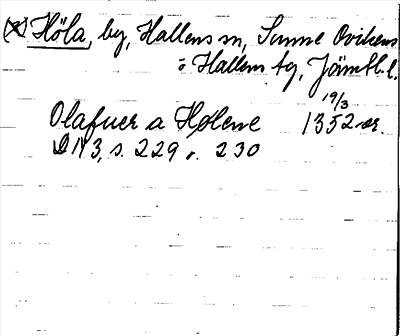 (x) Höla, by, Hallens sn, Sunne Ovikens
o Hallens tg, Jämtl. l.
19/3
Olafuer a Holene 1352 or.
DN 3, s. 229 o. 230